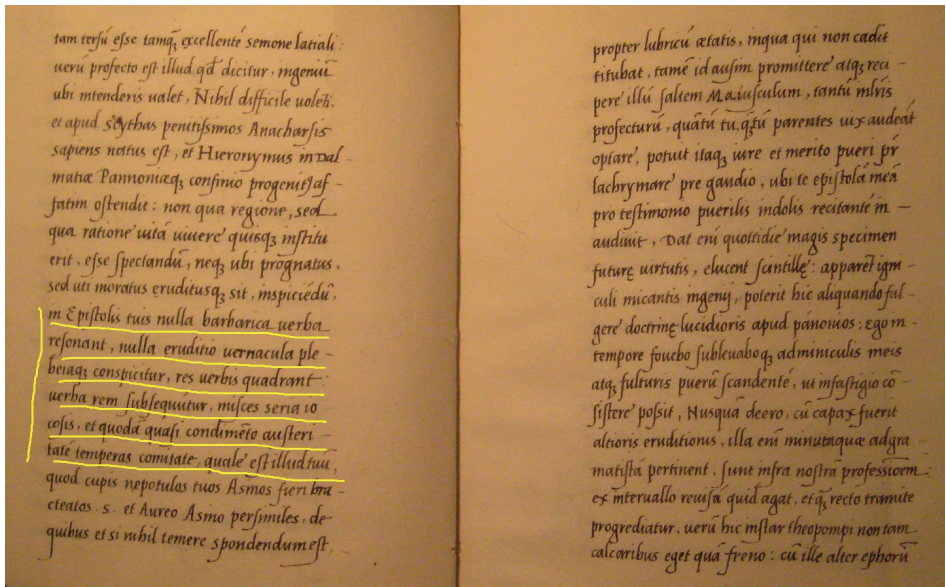 tam tersū esse tamq̄ʒ excellentē semone latiali :
uerū profecto est illud qd̄ dicitur, ingeniū
ubi intenderis ualet, Nihil difficile uolēti.
et apud Scythas penitissimos Anacharsis
sapiens natus est, et Hieronymus in Dal-
matiæ Pannoniæqʒ confinio progenitꝰ af-
fatim ostendit : non qua regione, sed
qua ratione uita uiuere quisqʒ institu
erit, esse spectandū, neqʒ ubi prognatus,
sed uti moratus eruditusqʒ sit, inspiciēdū,
in Epistolis tuis nulla barbarica uerba
resonant, nulla eruditio uernacula ple-
beiaqʒ conspicitur, res uerbis quadrant
uerba rem subsequūtur, misces seria io
cosis, et quodā quasi condimēto austeri-
tatē temperas comitate, quale est illud tuū,
quod cupis nepotulos tuos Asinos fieri bra-
cteatos .s. et Aureo Asino persimiles, de
quibus et si nihil temere spondendum est,
propter lubricū ætatis, inqua qui non cadit
titubat, tamē id ausim promittere atqʒ reci-
pere illū saltem Maiusculum, tantū inlr̄is
profecturū, quātū tu, q̄tū parentes uix audeāt
optare, potuit itaqʒ iure et merito pueri pr̄
lachrymare pre gaudio, ubi te epistolā meā
pro testimonio puerilis indolis recitantē in-
audiuit, Dat eni quottidie magis specimen
futurę uirtutis, elucent scintillę : apparēt igni-
culi micantis ingenij, poterit hic aliquando ful-
gere doctrinę lucidioris apud pānonios : Ego in-
tempore fouebo subleuaboqʒ adminiculis meis
atqʒ fulturis puerū scandentē, ut infastigio cō-
sistere possit, Nusquā deero, cū capax fuerit
altioris eruditionis, illa eni minutaquæ adgra-
matistā pertinent, sunt infra nostrā professionem
ex interuallo reuisā quid agat, et q̄ʒ recto tramite
progrediatur, uerū hic instar theopompi non tam
calcaribus eget quā freno : cū ille alter ephorū